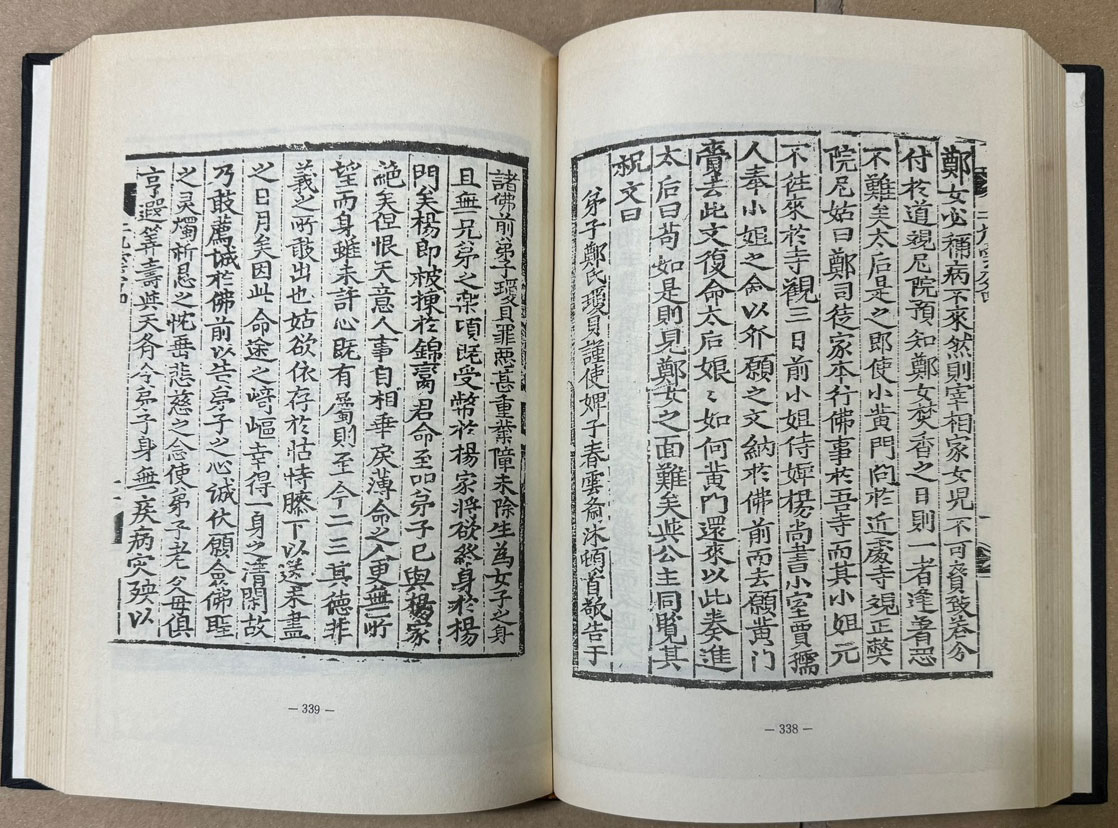 鄭女必稱病不來然則宰相家女児不可賚致若分
付於道覡尼院預知鄭女焚香之日則一者逢着恐
不難矣太后是之即使小黃門问於近處寺覡正弊
院尼姑曰鄭司徒家本行佛事於吾寺而其小姐元
不徃來於寺觀三日前小姐侍婢楊尚書小室賈孺
人奉小姐之命以介願之文納於佛前而去願黃门
賫去此文復命太后娘〻如何黃門還來以此奏進
太后曰苟如是則見鄭女之面難矣與公主同覧其
祝文曰
弟子鄭氏瓊貝謹使婢子春雲齋沐頓首敬告于
諸佛前弟子瓊貝罪惡甚重業障未除生為女子之身
且無兄弟之楽頃既受幣於楊家將欲終身於楊
門矣楊郎被揀於錦臠君命至品弟子已與楊家
絕矣但恨天意人事自相乖戻薄命之人更無所
望而身雖未許心既有屬則至今二三其德非
義之所敢出也姑欲依存於怙恃膝下以送未盡
之日月矣因此命途之崎嶇幸得一身之清閑故
乃敢薦誠於佛前以告弟子之心誠伏願僉佛聖
之灵燭祈恳之忱垂悲慈之念使弟子老父母俱
享遐筭壽與天齐令弟子身無疾病灾殃以
— 339 —
— 338 —